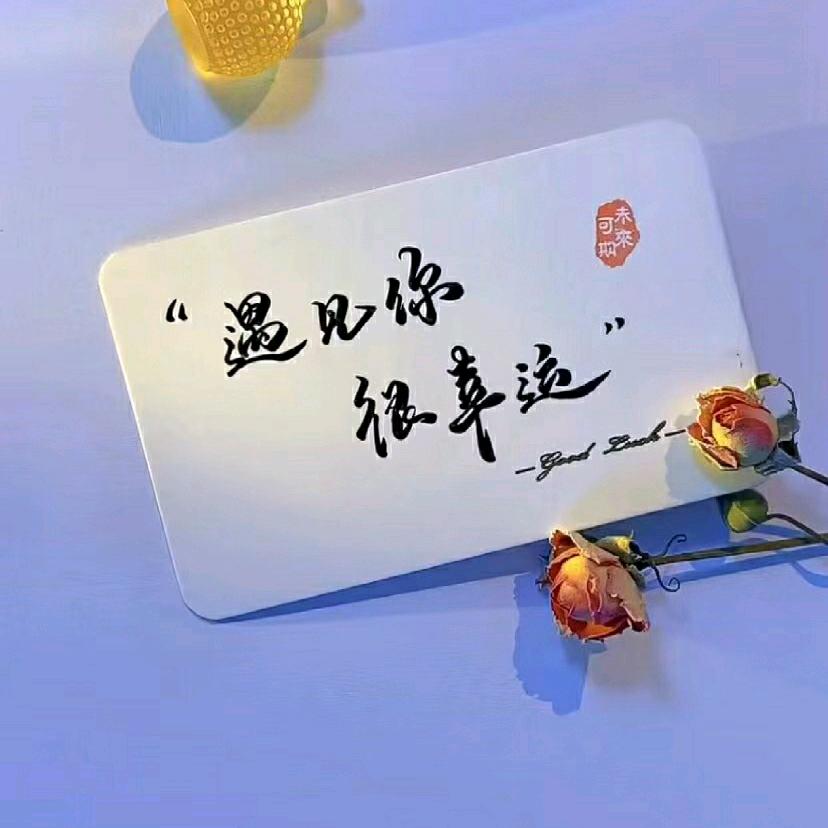 “遇见你
很幸运”
—Good Luck—
未來
可期